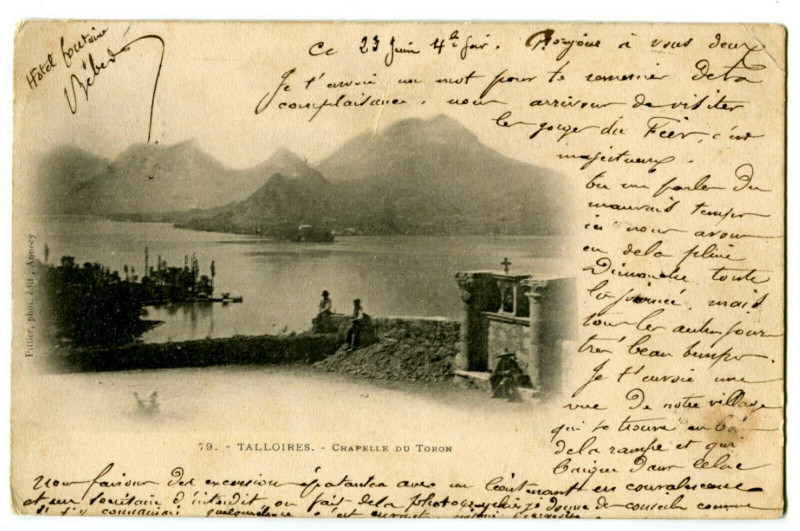 Hotel
Bébert
Ce 23 Juin 4h soir. Bonjour à vous deux
Je t'envoie un mot pour te remercier de ta
complaisance, nous arrivons de visiter
les gorges du Fier, c'est
majestueux.
tu me parles du
mauvais temps
ici nous avons
eu de la pluie
Dimanche toute
la journée, mais
tous les autres jours
très beau temps.
Je t'envoie une
vue de notre village
qui se trouve en bas
de la rampe et qui
baigne dans le lac
Pittier, phot. édit., Annecy
79. - TALLOIRES. - CHAPELLE DU TORON
Nous faisons des excursions épatantes avec un lieutenant en convalescence
et un secrétaire d' on fait de la photographie je donne des conseils comme
si s'y